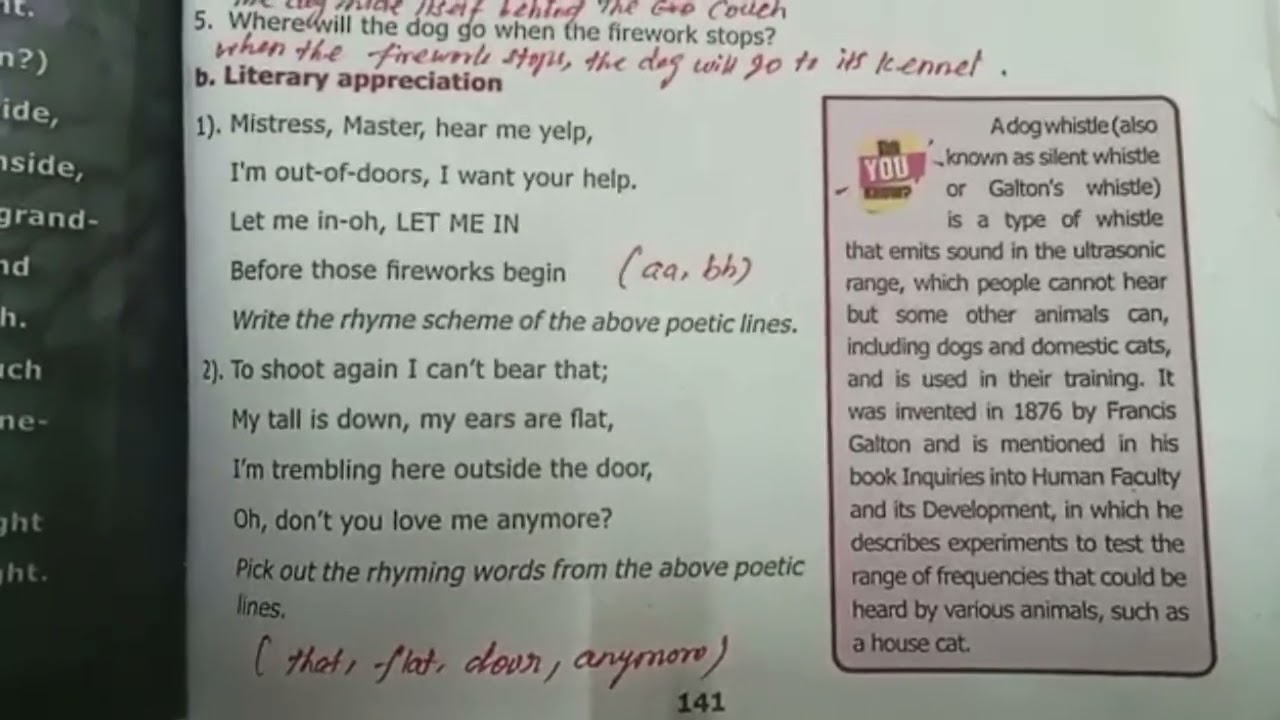 nt.
n?)
ide,
nside,
grand-
nd
h.
uch
ne-
ght
ght.
itself behind the Couch
5. Where will the dog go when the firework stops?
when the firework stops, the dog will go to its kennel.
b. Literary appreciation
1). Mistress, Master, hear me yelp,
I'm out-of-doors, I want your help.
Let me in-oh, LET ME IN
Before those fireworks begin (aa, bb)
Write the rhyme scheme of the above poetic lines.
2). To shoot again I can't bear that;
My tall is down, my ears are flat,
I'm trembling here outside the door,
Oh, don't you love me anymore?
Pick out the rhyming words from the above poetic
lines.
( that, flat, door, anymore)
DO
YOU
KNOW?
A dog whistle (also
known as silent whistle
or Galton's whistle)
is a type of whistle
that emits sound in the ultrasonic
range, which people cannot hear
but some other animals can,
including dogs and domestic cats,
and is used in their training. It
was invented in 1876 by Francis
Galton and is mentioned in his
book Inquiries into Human Faculty
and its Development, in which he
describes experiments to test the
range of frequencies that could be
heard by various animals, such as
a house cat.
141